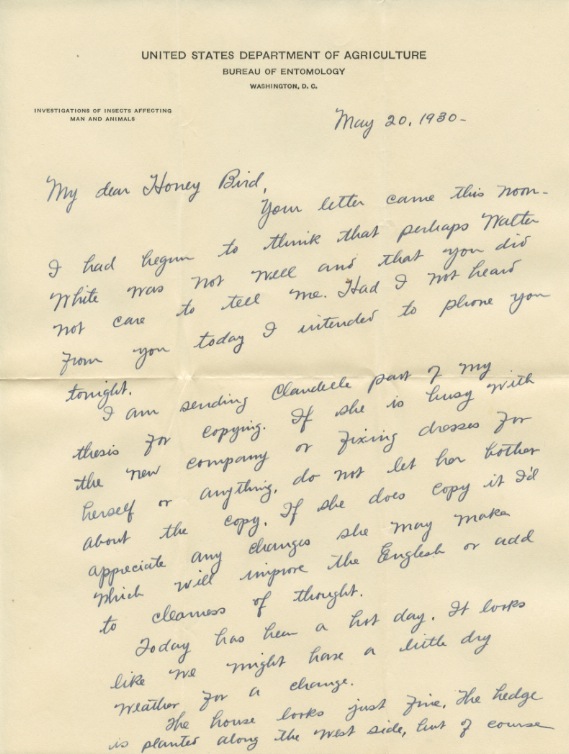 UNITED STATES DEPARTMENT OF AGRICULTURE
BUREAU OF ENTOMOLOGY
WASHINGTON, D. C.
INVESTIGATIONS OF INSECTS AFFECTING
MAN AND ANIMALS
May 20, 1930-
My dear Honey Bird,
Your letter came this noon-
I had begun to think that perhaps Walter
White was not well and that you did
not care to tell me. Had I not heard
from you today I intended to phone you
tonight.
I am sending Claudelle part of my
thesis for copying. If she is busy with
the new company or fixing dresses for
herself or anything, do not let her bother
about the copy. If she does copy it I'd
appreciate any changes she may make
which will improve the English or add
to clearness of thought.
Today has been a hot day. It looks
like we might have a little dry
weather for a change.
The house looks just fine. The hedge
is planted along the west side, but of course